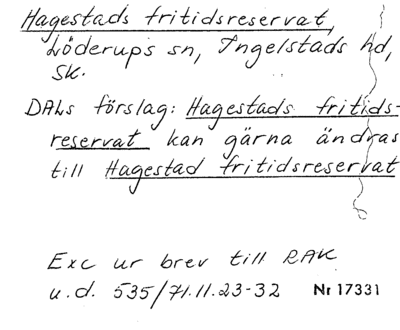 Hagestads fritidsreservat,
Löderups sn, Ingelstads hd,
Sk.
DALs förslag: Hagestads fritids-
reservat kan gärna ändras
till Hagestad fritidsreservat
Exc ur brev till RAK
u.d. 535/71.11.23-32 Nr 17331